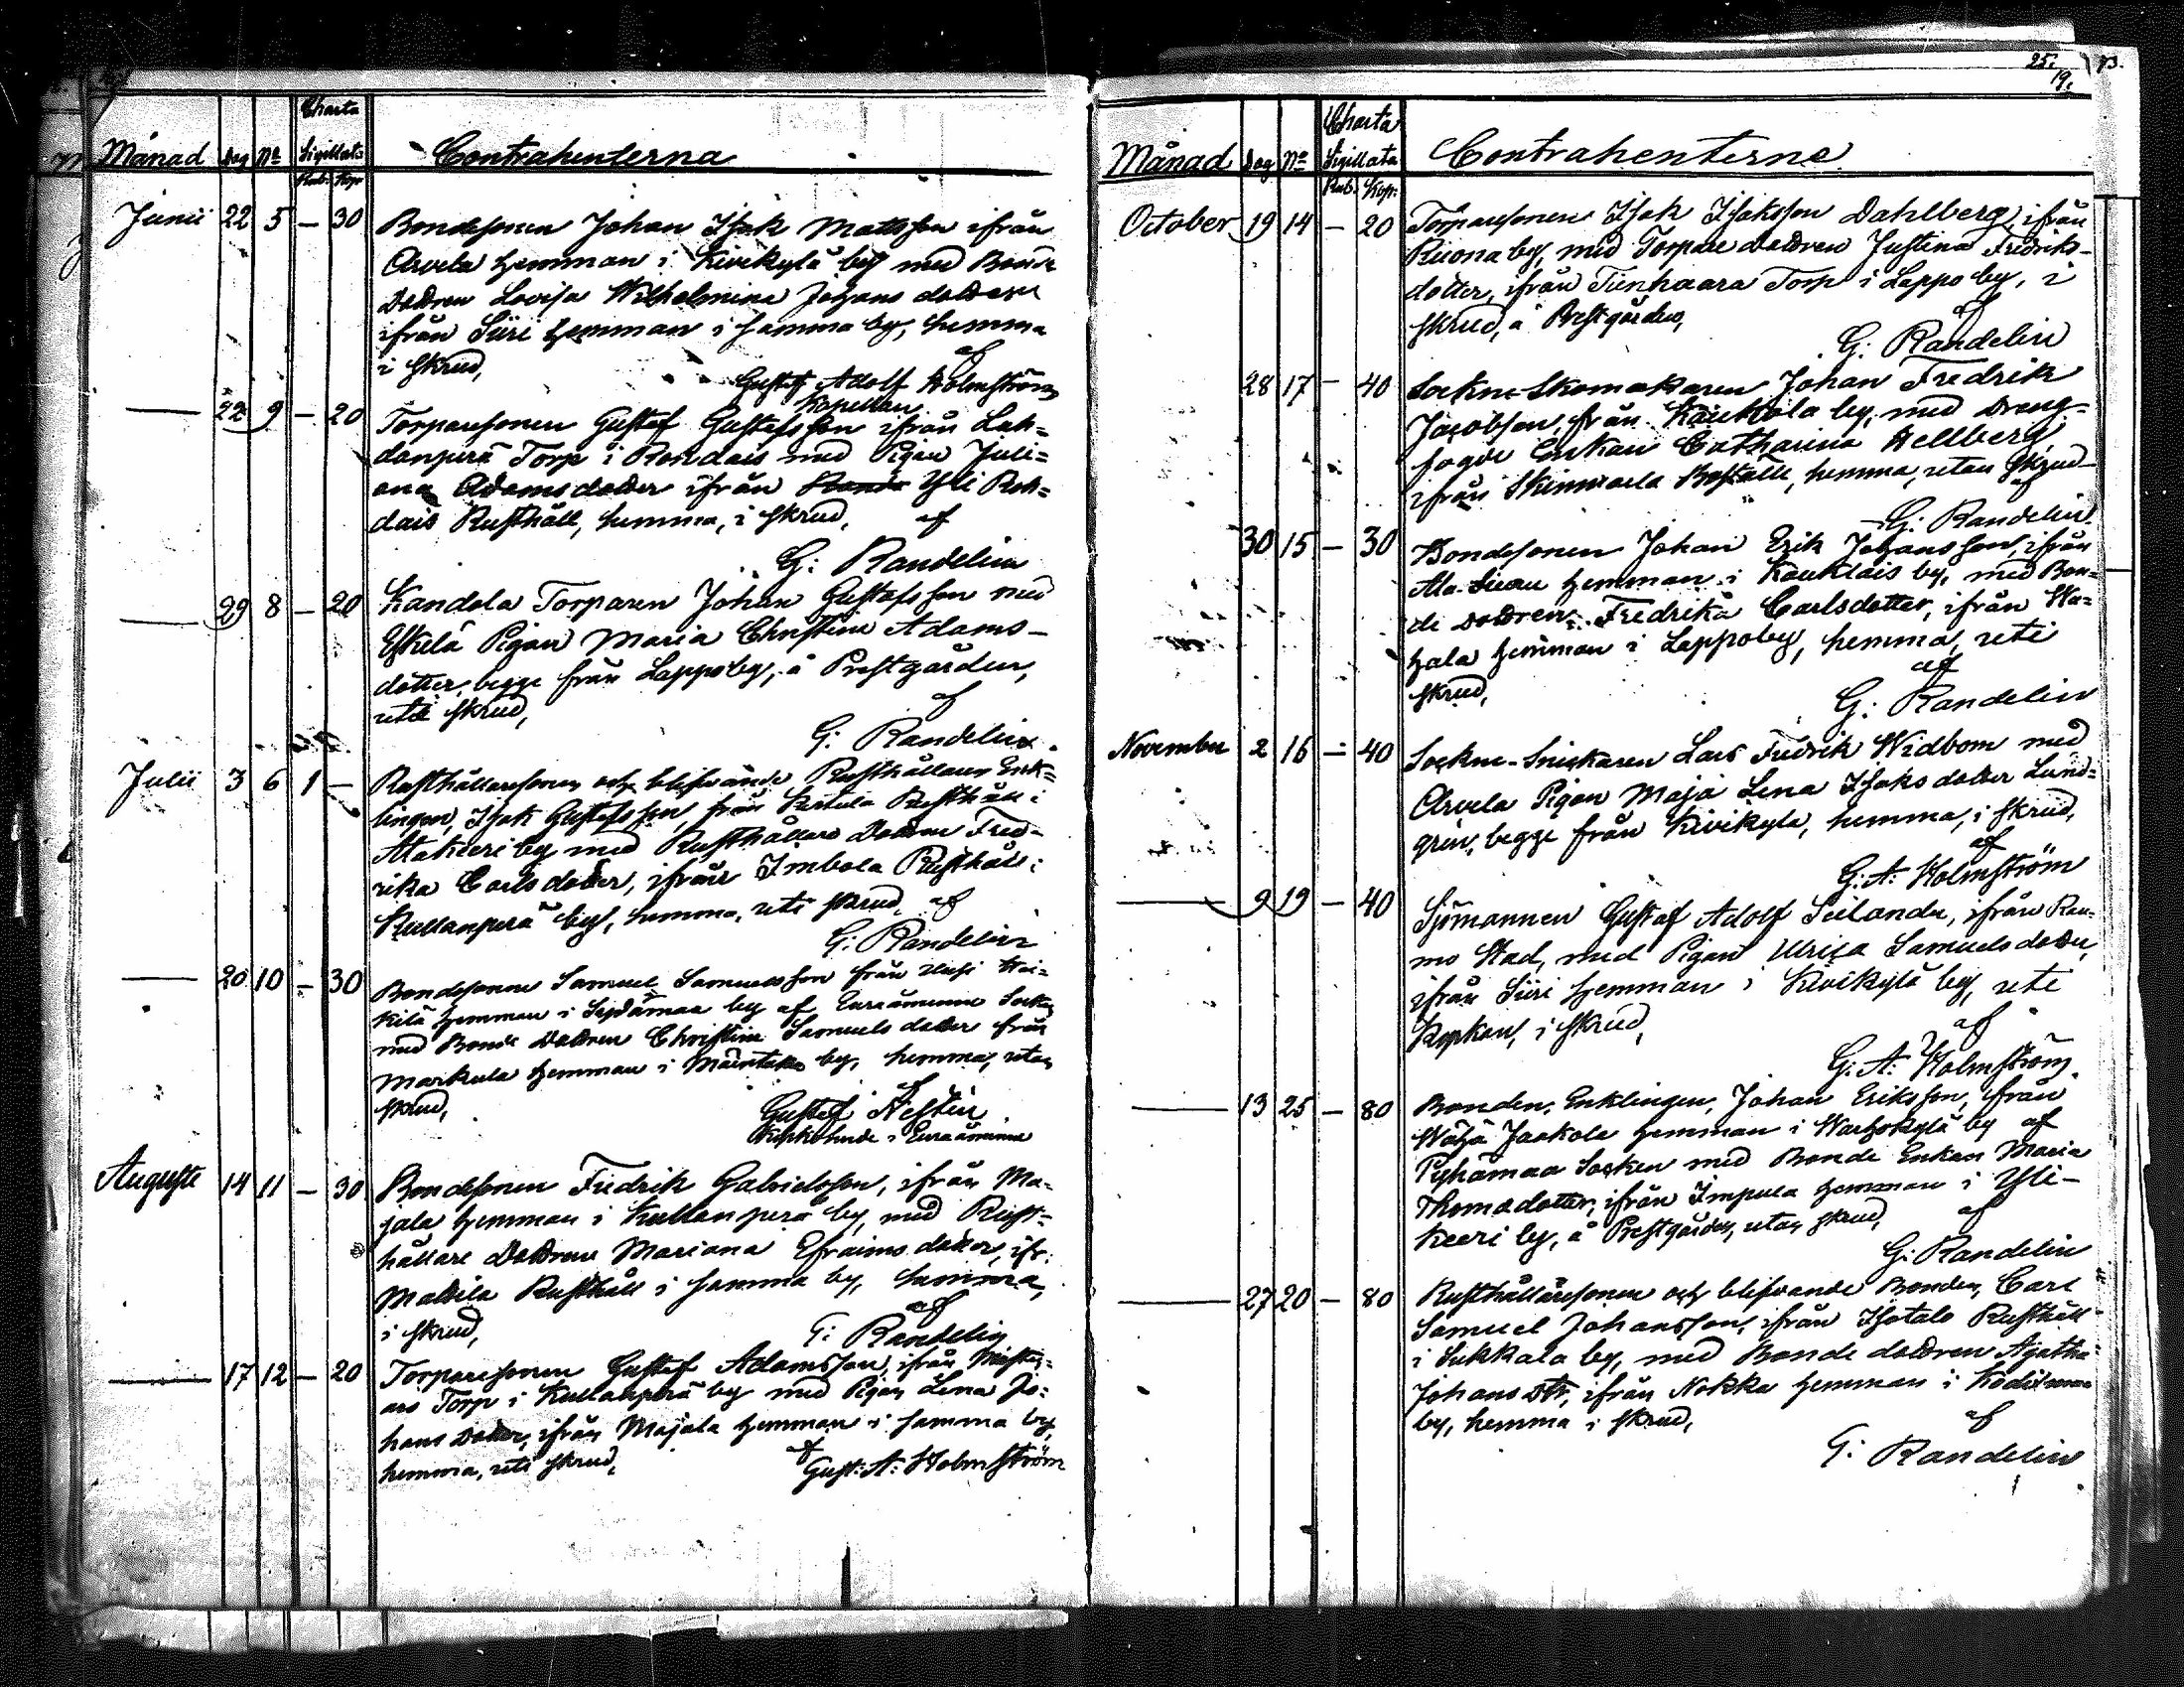 Charta
Månad Dag No Sigillata Contrahenterna
Rub. Kop
Junii 22 5 — 30 Bondesonen Johan Isak Mattsson ifrån
Arvela hemman i Kivikylä by med Bonde
Dottren Lovisa Wilhelmina Johans dotter
ifrån Siiri hemman i samma by, hemma
i skrud,
af
Gustaf Adolf Holmström
Kapellan
— 22 9 — 20 Torparesonen Gustaf Gustafsson ifrån Lah=
danperä Torp i Rohdais med Pigan Juli=
ana Adamsdotter ifrån Yli Roh=
dais Rusthåll, hemma, i skrud, af
G: Randelin
— 29 8 — 20 Kandola Torparen Johan Gustafsson med
Eskelä Pigan Maria Christina Adams-
dotter, begge från Lappo by, å Prestgården,
uti skrud,
af
G: Randelin
Julii 3 6 1 — Rusthållaresonen och blifvande Rusthållaren Enk=
lingen, Isak Gustafsson, från Rusthåll i
Alakieri by med Rusthållare Dottren Fred-
rika Carlsdotter, ifrån Imbola Rusthåll i
Kullanperä by, hemma, uti skrud, af
G: Randelin
— 20 10 — 30 Bondesonen Samuel Samuelsson från
kilä hemman i by af Euraåminne Socken
med Bonde Dottren Christina Samuels dotter från
Markula hemman i by, hemma, utan
skrud,
af
Gustaf Hestin
Kyrkoherde i Euraåminne
Auguste 14 11 — 30 Bondesonen Fredrik Gabrielsson, ifrån Ma=
jala hemman i Kullanperä by, med Rust=
hållare Dottren Mariana Efraims dotter, ifr:
Mattila Rusthåll i samma by, hemma,
i skrud,
af
G: Randelin
— 17 12 — 20 Torparesonen Gustaf Adamsson, ifrån
ais Torp i Kullanperä by med Pigan Lena Jo=
hans dotter, ifrån Majala hemman i samma by,
hemma, uti skrud,
af
Gust: A: Holmström
25. 73.
19.
Charta
Månad Dag No Sigillata Contrahenterne
Rub. Kop:
October 19 14 — 20 Torparesonen Isak Isaksson Dahlberg, ifrån
Ruona by, med Torpare dottren Justina Fredriks-
dotter, ifrån Tiinhaara Torp i Lappo by, i
skrud, å Prestgården,
af
G: Randelin
28 17 — 40 Sockne-Skomakaren Johan Fredrik
Jacobsson, från Kauktola by, med Dreng=
fogde Enkan Catharina Hellberg
ifrån Boställe, hemma, utan skrud
af
G: Randelin
30 15 — 30 Bondesonen Johan Erik Johansson, ifrån
Ala hemman i Kauklais by, med Bon=
de Dottren Fredrika Carlsdotter, ifrån Ha=
hala hemman i Lappo by, hemma, uti
skrud,
af
G: Randelin
November 2 16 — 40 Sockne-Snickaren Lars Fredrik Widbom med
Arvela Pigan Maja Lena Isaks dotter Lund=
gren, begge från Kivikylä, hemma, i skrud,
af
G: A: Holmström
— 9 19 — 40 Sjömannen Gustaf Adolf Seilander, ifrån Rau=
mo Stad, med Pigan Ulrica Samuels dotter,
ifrån Siiri hemman i Kivikylä by, uti
Kyrkan, i skrud,
af
G: A: Holmström
— 13 25 — 80 Bonden, Enklingen, Johan Eriksson, ifrån
Wähä Jaakola hemman i Warhokylä by af
Pyhämaa Socken med Bonde Enkan Maria
Thomsdotter, ifrån Impula hemman i Yli-
kieri by, å Prestgården, utan skrud,
af
G: Randelin
— 27 20 — 80 Rusthållaresonen och blifvande Bonden, Carl
Samuel Johansson, ifrån Isotalo Rusthåll
i Sukkala by, med Bonde dottren Agatha
Johans Dtr, ifrån Nokka hemman i
by, hemma i skrud,
af
G: Randelin